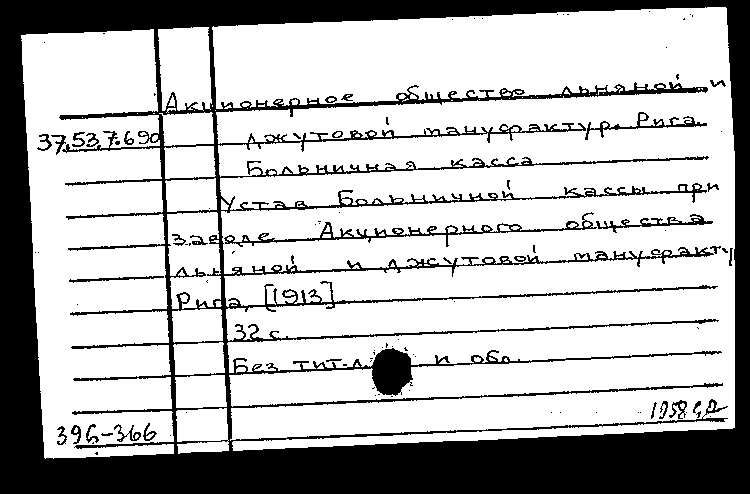 Акционерное общество льняной и
37.53.7.690 джутовой мануфактур. Рига.
Больничная касса
Устав Больничной кассы при
заводе Акционерного общества
льняной и джутовой мануфакту
Рига, [1913]
32 с.
Без тит. л. и обл.
396-366